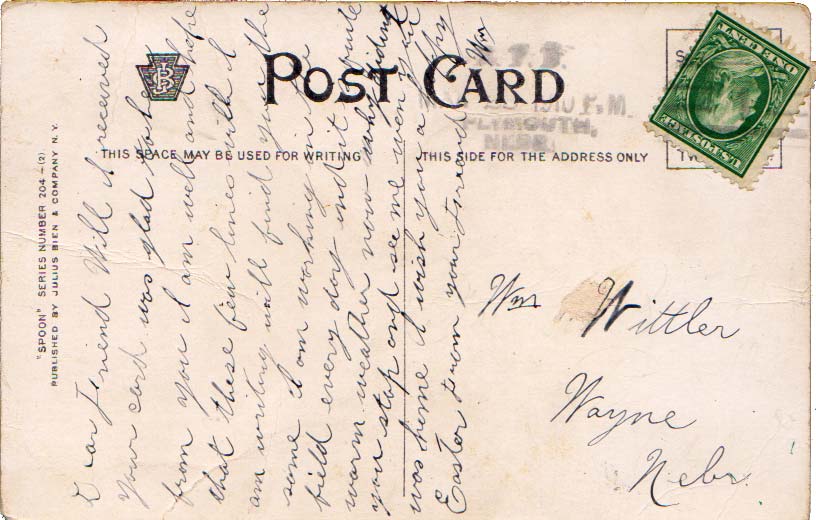 POST CARD
THIS SPACE MAY BE USED FOR WRITING
THIS SIDE FOR THE ADDRESS ONLY
"SPOON" SERIES NUMBER 204-(2)
PUBLISHED BY JULIUS BIEN & COMPANY N.Y.
Dear Friend Will I received
your card was glad to hear
from you I am well and hope
that these few lines with I
am writing will find you the
same I am working in the
field every day isnt it quite
warm weather now why didnt
you stop and see me wen you
was home I wish you a happy
Easter from your Friend
Wm
R.P.D.
1910 P.M.
PLYMOUTH,
NEBR.
U.S. POSTAGE
ONE CENT
Wm Wittler
Wayne
Nebr.